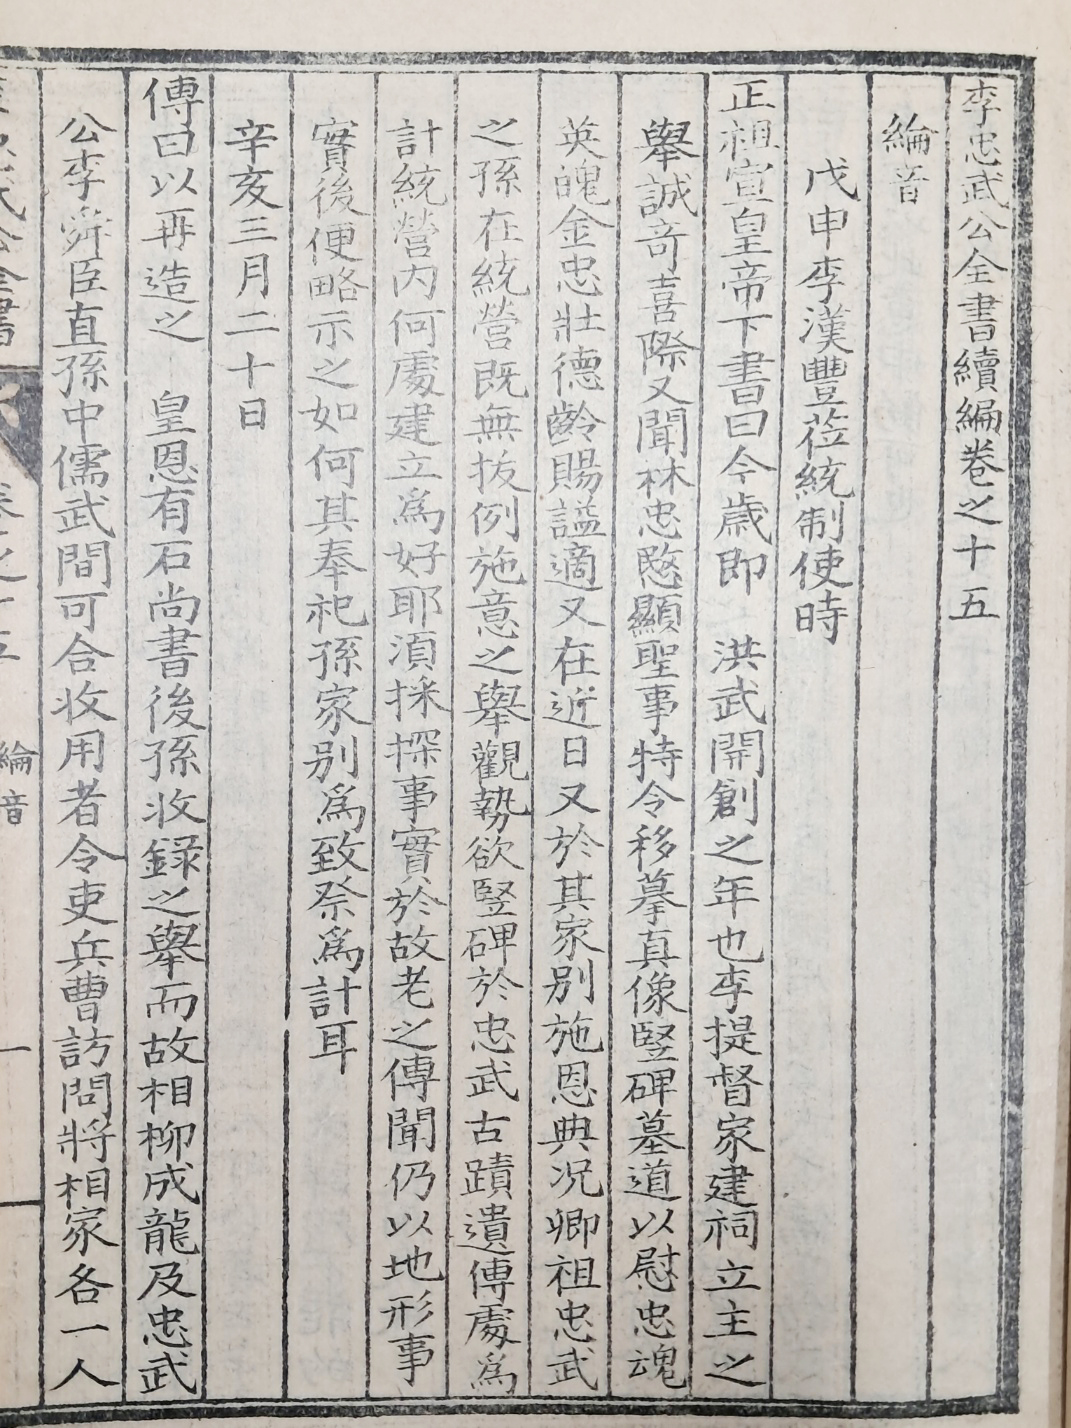 李忠武公全書續編卷之十五
綸音
戊申李漢豐莅統制使時
正祖宣皇帝下書曰今歲卽 洪武開創之年也李提督家建祠立主之
舉誠奇喜際又聞林忠愍顯聖事特令移摹真像竪碑墓道以慰忠魂
英魄金忠壯德齡賜謚適又在近日又於其家別施恩典况卿祖忠武
之孫在統營旣無拔例施意之舉觀勢欲竪碑於忠武古蹟遺傳處爲
計統營內何處建立爲好耶須採探事實於故老之傳聞仍以地形事
實後便略示之如何其奉祀孫家別爲致祭爲計耳
辛亥三月二十日
傳曰以再造之 皇恩有石尚書後孫收錄之舉而故相柳成龍及忠武
公李舜臣直孫中儒武間可合收用者令吏兵曹訪問將相家各一人
綸音
一